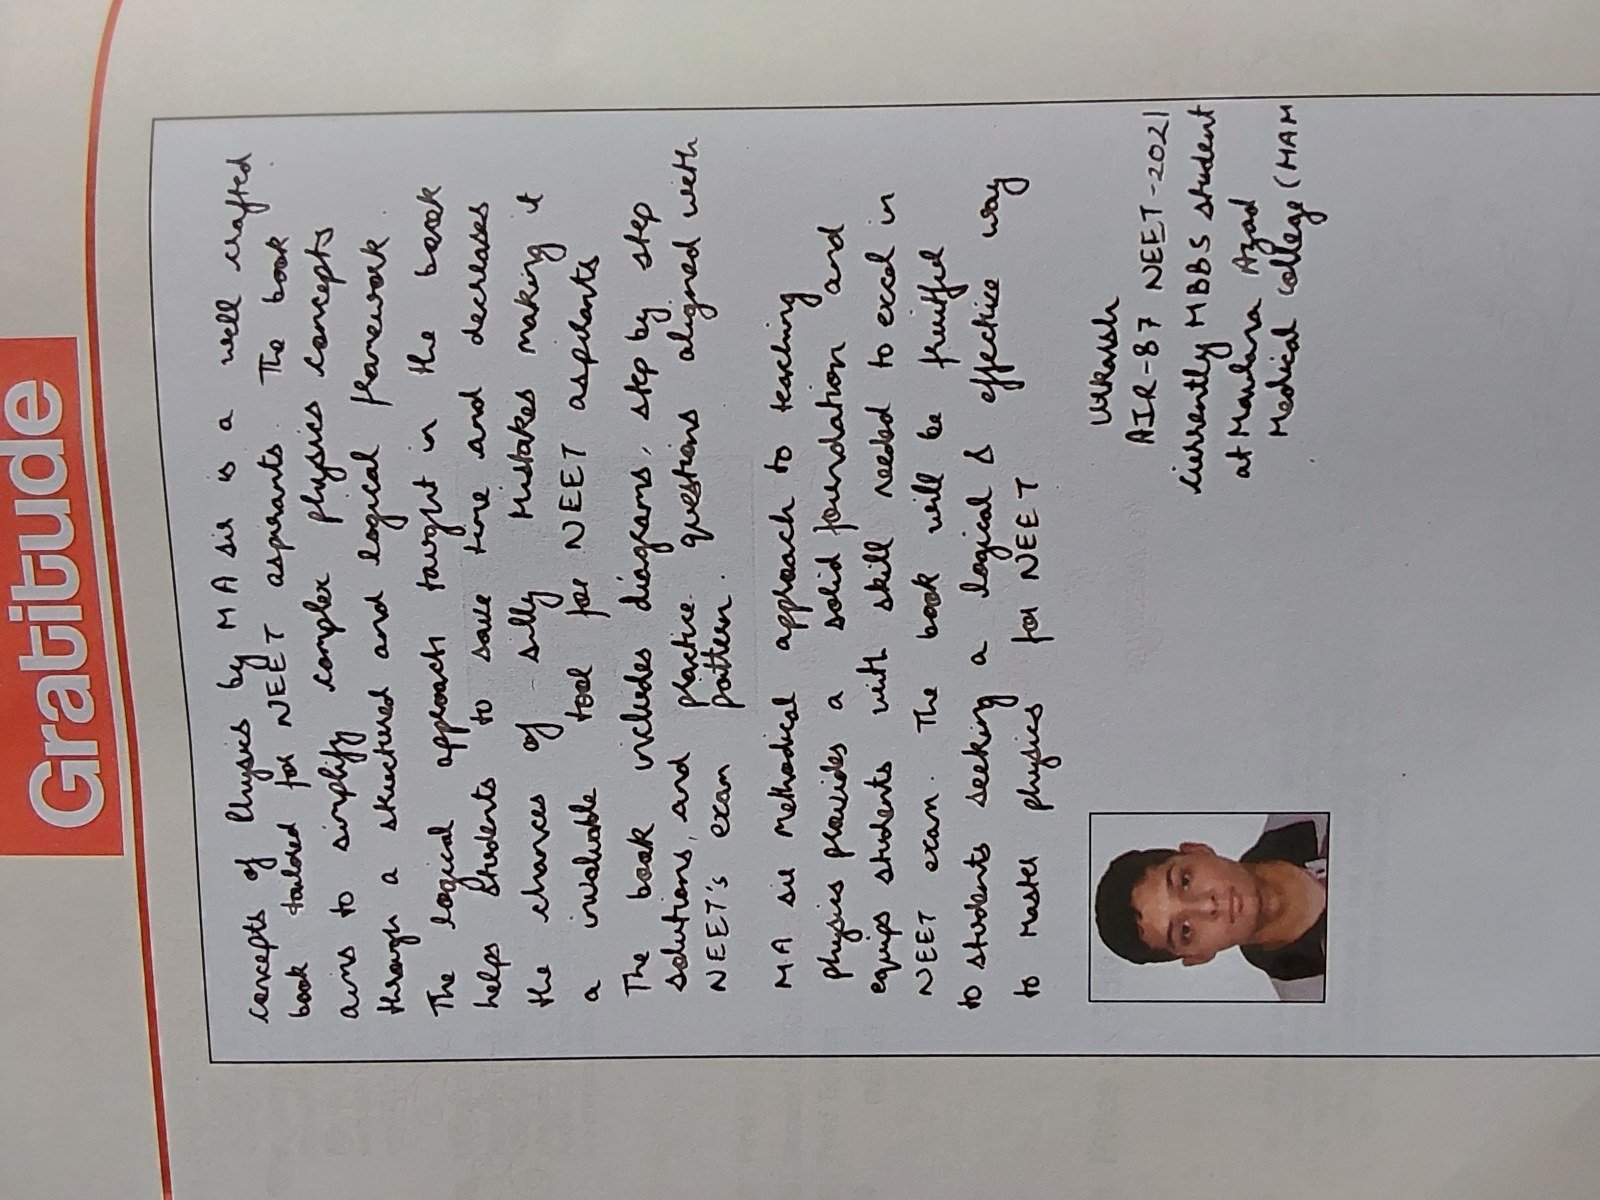 Gratitude
concepts of Physics by MA sir is a well crafted
book tailored for NEET aspirants. The book
aims to simplify complex physics concepts
through a structured and logical framework
The logical approach taught in the book
helps students to save time and decreases
the chances of silly mistakes making it
a invaluable tool for NEET aspirants
The book includes diagrams, step by step
solutions, and practice questions aligned with
NEET's exam pattern.
M.A sir methodical approach to teaching
physics provides a solid foundation and
equips students with skill needed to excel in
NEET exam. The book will be fruitful
to students seeking a logical & effective way
to master physics for NEET
Utkarsh
AIR-87 NEET-2021
Currently MBBS student
at Maulana Azad
Medical College (MAM